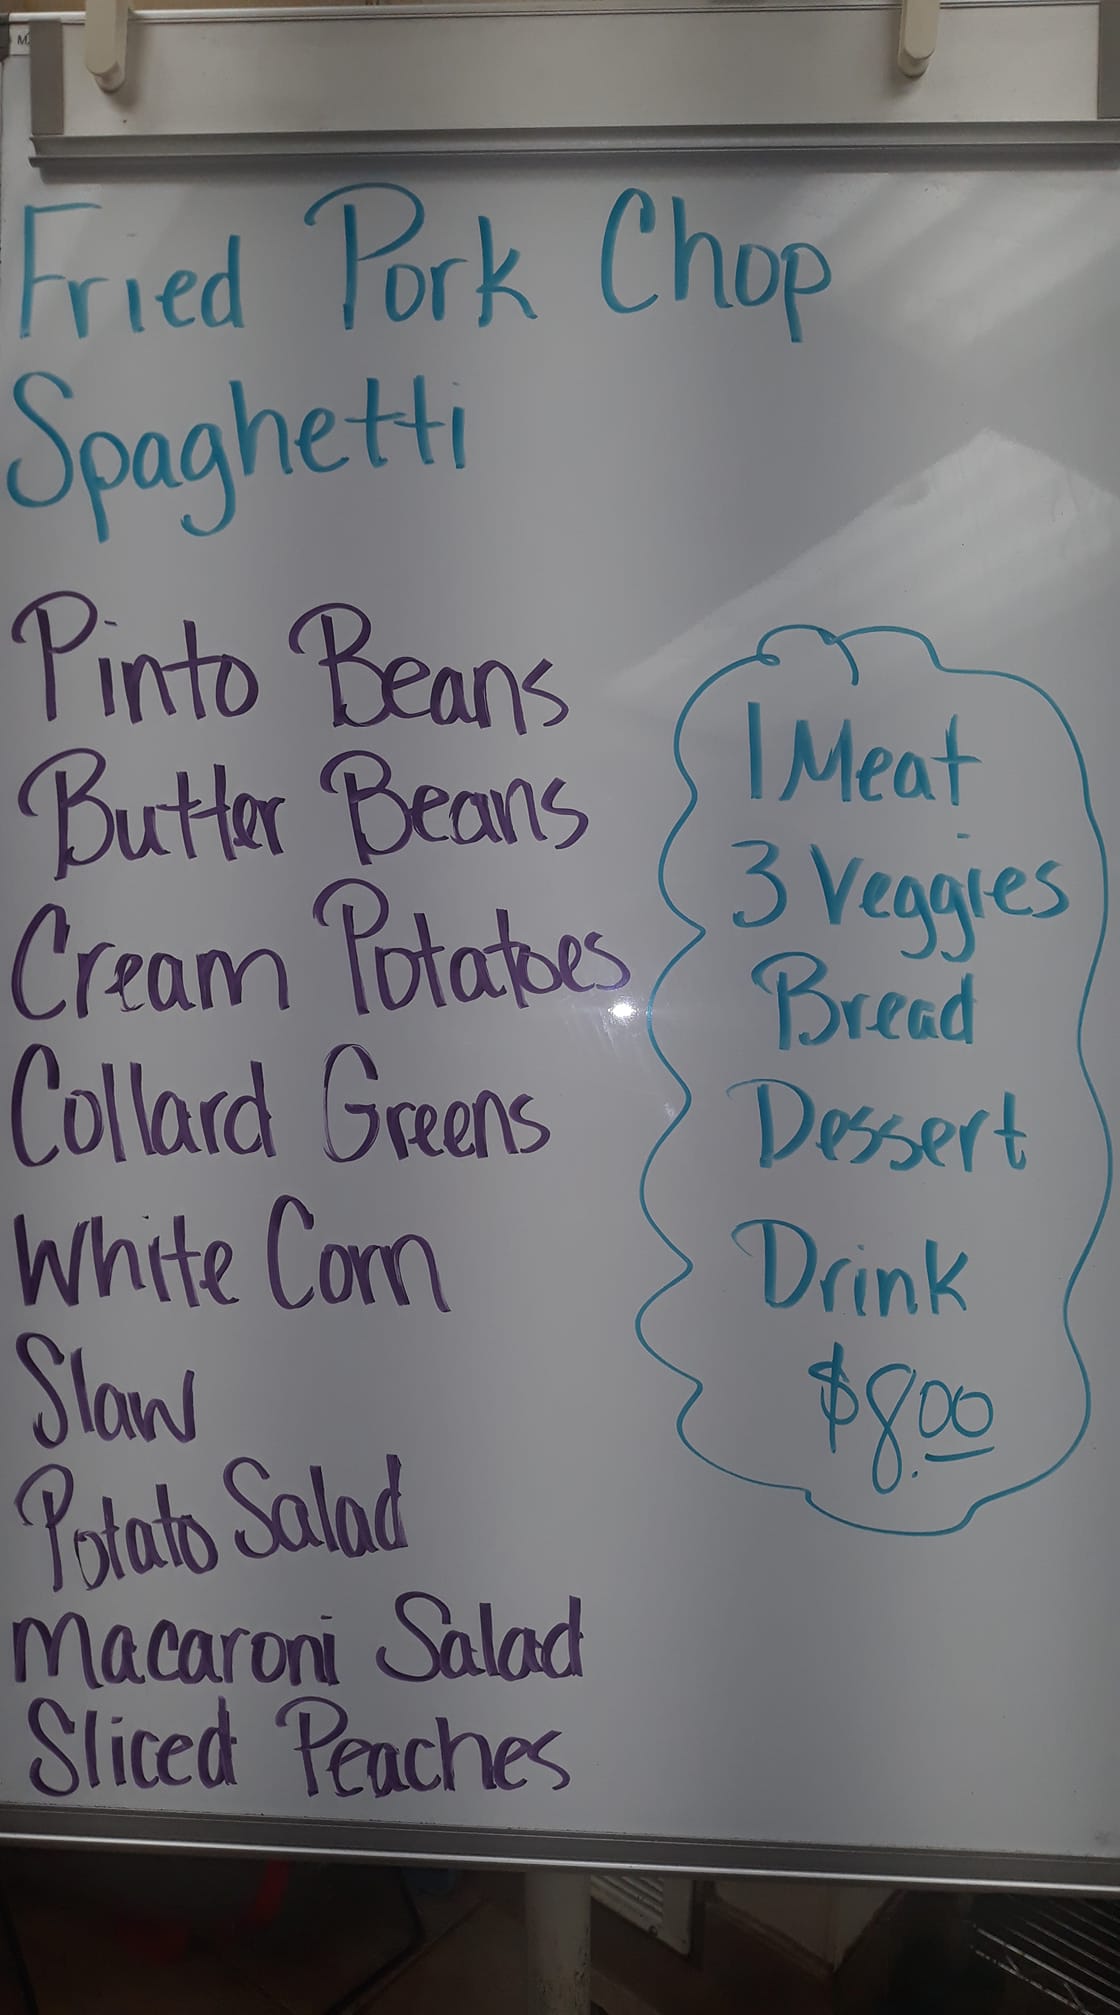 Fried Pork Chop
Spaghetti
Pinto Beans
Butter Beans
Cream Potatoes
Collard Greens
White Corn
Slaw
Potato Salad
Macaroni Salad
Sliced Peaches
1 Meat
3 Veggies
Bread
Dessert
Drink
$8.00